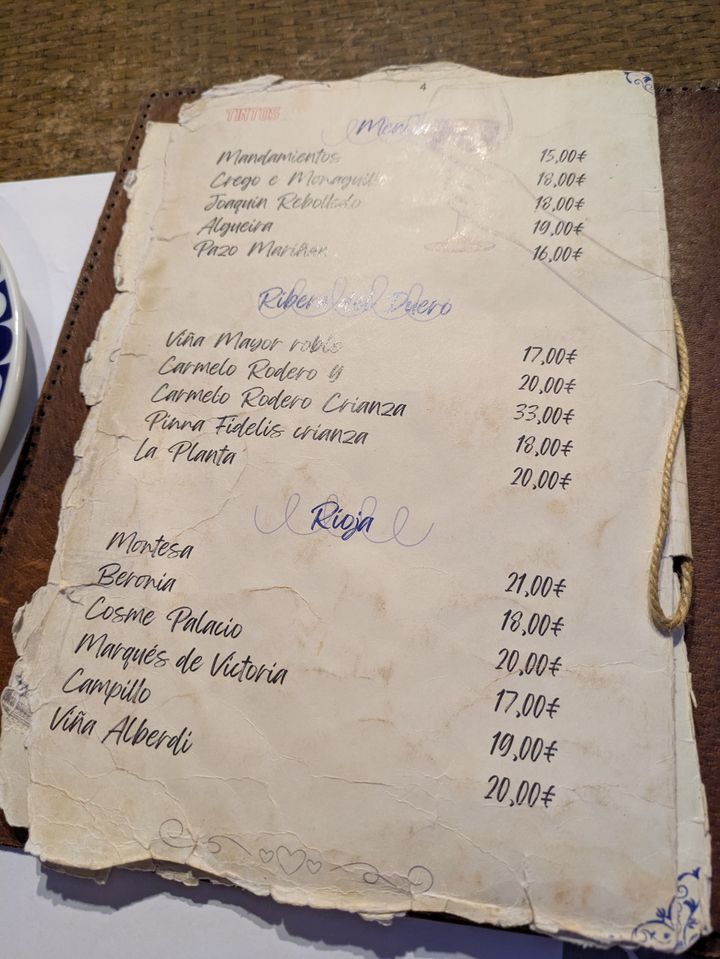 4
TINTOS
Mencía
Mandamientos 15,00€
Crego e Monaguillo 18,00€
Joaquín Rebolledo 18,00€
Algueira 19,00€
Pazo Mariñan 16,00€
Ribera del Duero
Viña Mayor roble 17,00€
Carmelo Rodero 9 20,00€
Carmelo Rodero Crianza 33,00€
Pinna Fidelis crianza 18,00€
La Planta 20,00€
Rioja
Montesa 21,00€
Beronia 18,00€
Cosme Palacio 20,00€
Marqués de Victoria 17,00€
Campillo 19,00€
Viña Alberdi 20,00€